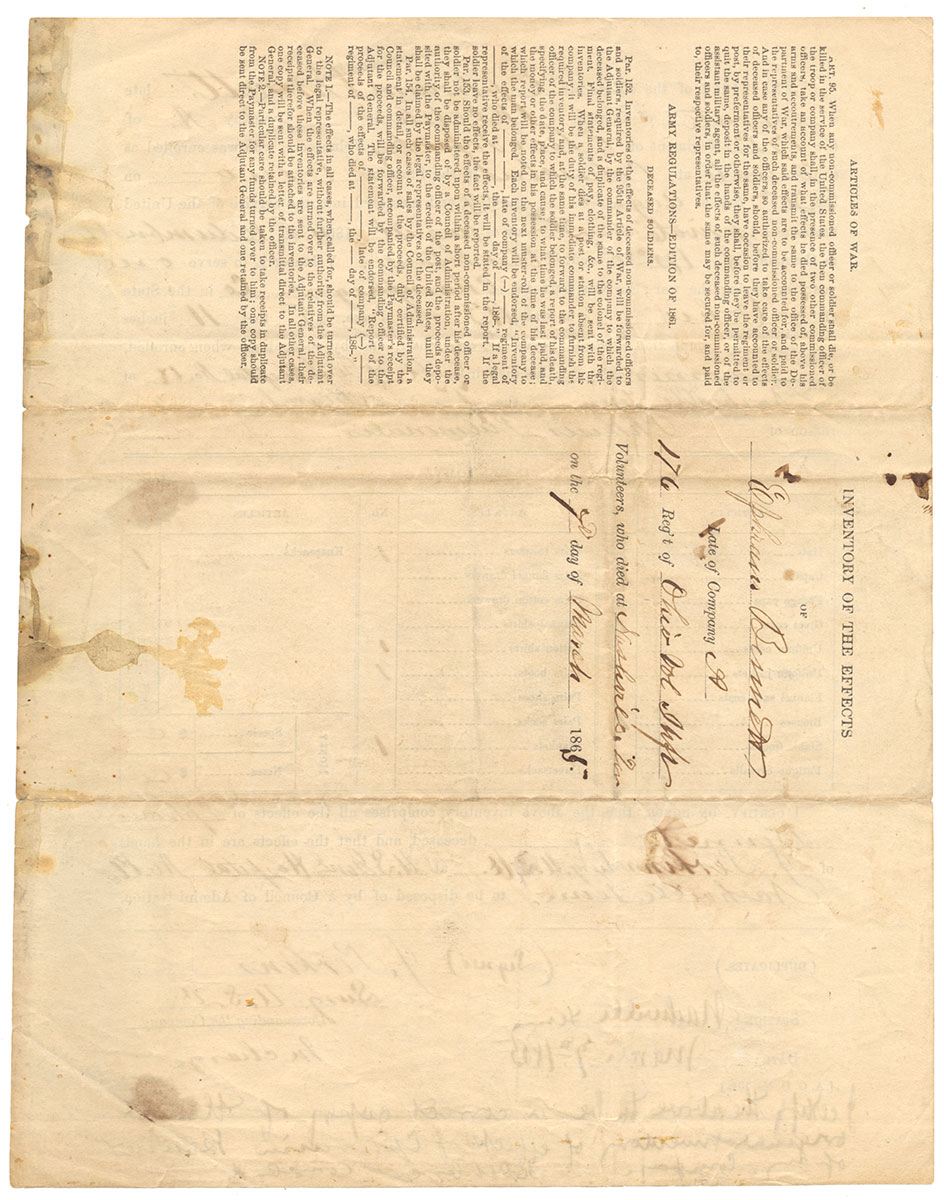 ARTICLES OF WAR.
ART. 95. When any non-commissioned officer or soldier shall die, or be
killed in the service of the United States, the then commanding officer of
the troop or company shall, in the presence of two other commissioned
officers, take an account of what effects he died possessed of, above his
arms and accoutrements, and transmit the same to the office of the De-
partment of War, which said effects are to be accounted for, and paid to
the representatives of such deceased non-commissioned officer or soldier.
And in case any of the officers, so authorized to take care of the effects
of deceased officers and soldiers, should, before they have accounted to
their representatives for the same, have occasion to leave the regiment or
post, by preferment or otherwise, they shall, before they be permitted to
quit the same, deposit in the hands of the commanding officer, or of the
assistant military agent, all the effects of such deceased non-commissioned
officers and soldiers, in order that the same may be secured for, and paid
to, their respective representatives.
ARMY REGULATIONS—EDITION OF 1861.
DECEASED SOLDIERS.
Par. 152. Inventories of the effects of deceased non-commissioned officers
and soldiers, required by the 95th Article of War, will be forwarded to
the Adjutant General, by the commander of the company to which the
deceased belonged, and a duplicate of the same to the colonel of the regi-
ment. Final statements of pay, clothing, &c., will be sent with the
inventories. When a soldier dies at a post or station absent from his
company, it will be the duty of his immediate commander to furnish the
required inventory, and, at the same time, to forward to the commanding
officer of the company to which the soldier belonged, a report of his death,
specifying the date, place, and cause; to what time he was last paid, and
the money or other effects in his possession at the time of his decease;
which report will be noted on the next muster-roll of the company to
which the man belonged. Each inventory will be endorsed, "Inventory
of the effects of ——, late of company (—) —— regiment of
——, who died at ——, the —— day of ——, 186-." If a legal
representative receive the effects, it will be stated in the report. If the
soldier leave no effects, the fact will be reported.
Par. 153. Should the effects of a deceased non-commissioned officer or
soldier not be administered upon within a short period after his decease,
they shall be disposed of by a Council of Administration, under the
authority of the commanding officer of the post, and the proceeds depo-
sited with the Paymaster, to the credit of the United States, until they
shall be claimed by the legal representatives of the deceased.
Par. 154. In all such cases of sales by the Council of Administration, a
statement in detail, or account of the proceeds, duly certified by the
Council and commanding officer, accompanied by the Paymaster's receipt
for the proceeds, will be forwarded by the commanding officer to the
Adjutant General. The statement will be endorsed, "Report of the
proceeds of the effects of ——, late of company (—) ——
regiment of ——, who died at ——, the —— day of ——, 186-."
NOTE 1.—The effects in all cases, when called for, should be turned over
to the legal representative, without further authority from the Adjutant
General. When the effects are turned over to the relatives of the de-
ceased before these inventories are sent to the Adjutant General, their
receipts therefor should be attached to the inventories. In all other cases,
one copy will be sent with a letter of transmittal direct to the Adjutant
General, and a duplicate retained by the officer.
NOTE 2.—Particular care should be taken to take receipts in duplicate
from the Paymaster for any funds turned over to him; one copy should
be sent direct to the Adjutant General and one retained by the officer.
INVENTORY OF THE EFFECTS
OF
Ephraim Bennett
Late of Company A
176 Reg't of Ohio Vol
Volunteers, who died at Nashville, Ten
on the day of March 1865.